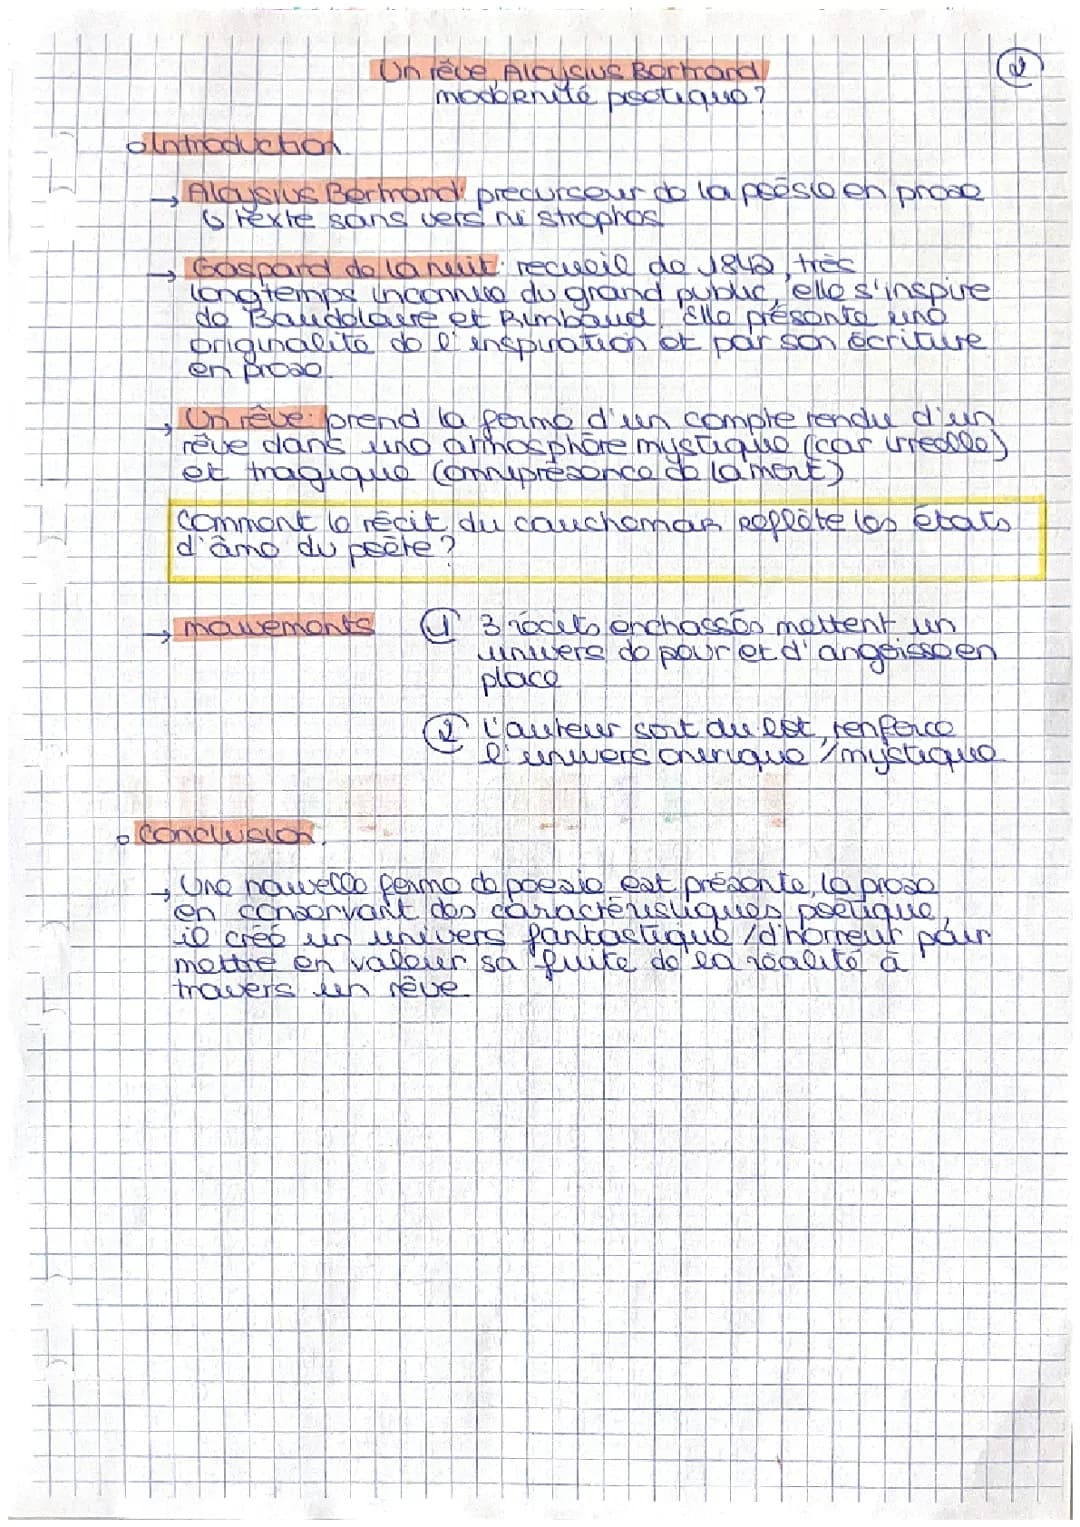 Un rêve, Aloysius Bertrand
modernité poétique?
2
Introduction
→ Aloysius Bertrand: precurseur de la poésie en prose
↳ texte sans vers ni strophes
→ Gaspard de la nuit: recueil de 1842, très
longtemps inconnue du grand public, elle s'inspire
de Baudelaire et Rimbaud. Elle présente une
originalité de l'inspiration et par son écriture
en prose
→ Un rêve: prend la forme d'un compte rendu d'un
rêve dans une atmosphère mystique (car irreelle)
et tragique (omniprésence de la mort)
Comment le récit du cauchemar reflète les états
d'âme du poète?
→ mouvements
1 3 récits enchassés mettent un
univers de peur et d'angoisse en
place
2 L'auteur sort du lot, renforce
l'univers onirique / mystique
Conclusion.
→ Une nouvelle forme de poesie est présente, la prose
en conservant des caractéristiques poétique,
il créé un univers fantastique / d'horreur pour
mettre en valeur sa fuite de la réalité à
travers un rêve